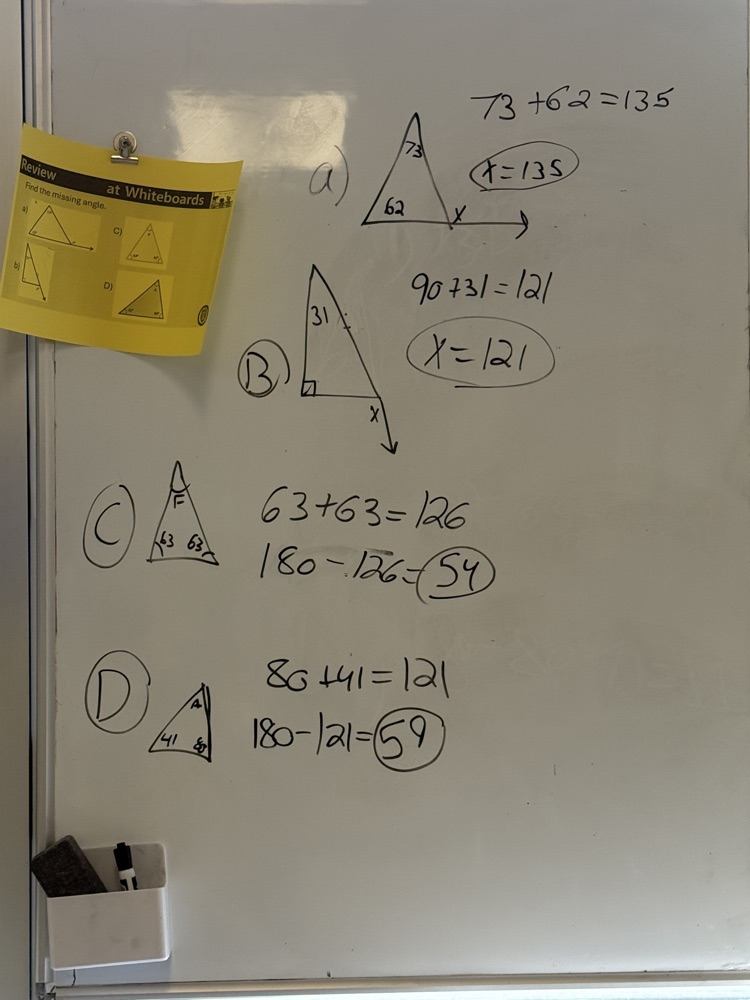 Review
at Whiteboards
Find the missing angle.
a)
C)
b)
D)
a)
73
62
x
73 + 62 = 135
x = 135
B
31
x
90 + 31 = 121
x = 121
C
F
63 63
63 + 63 = 126
180 - 126 = 54
D
A
41 80
80 + 41 = 121
180 - 121 = 59